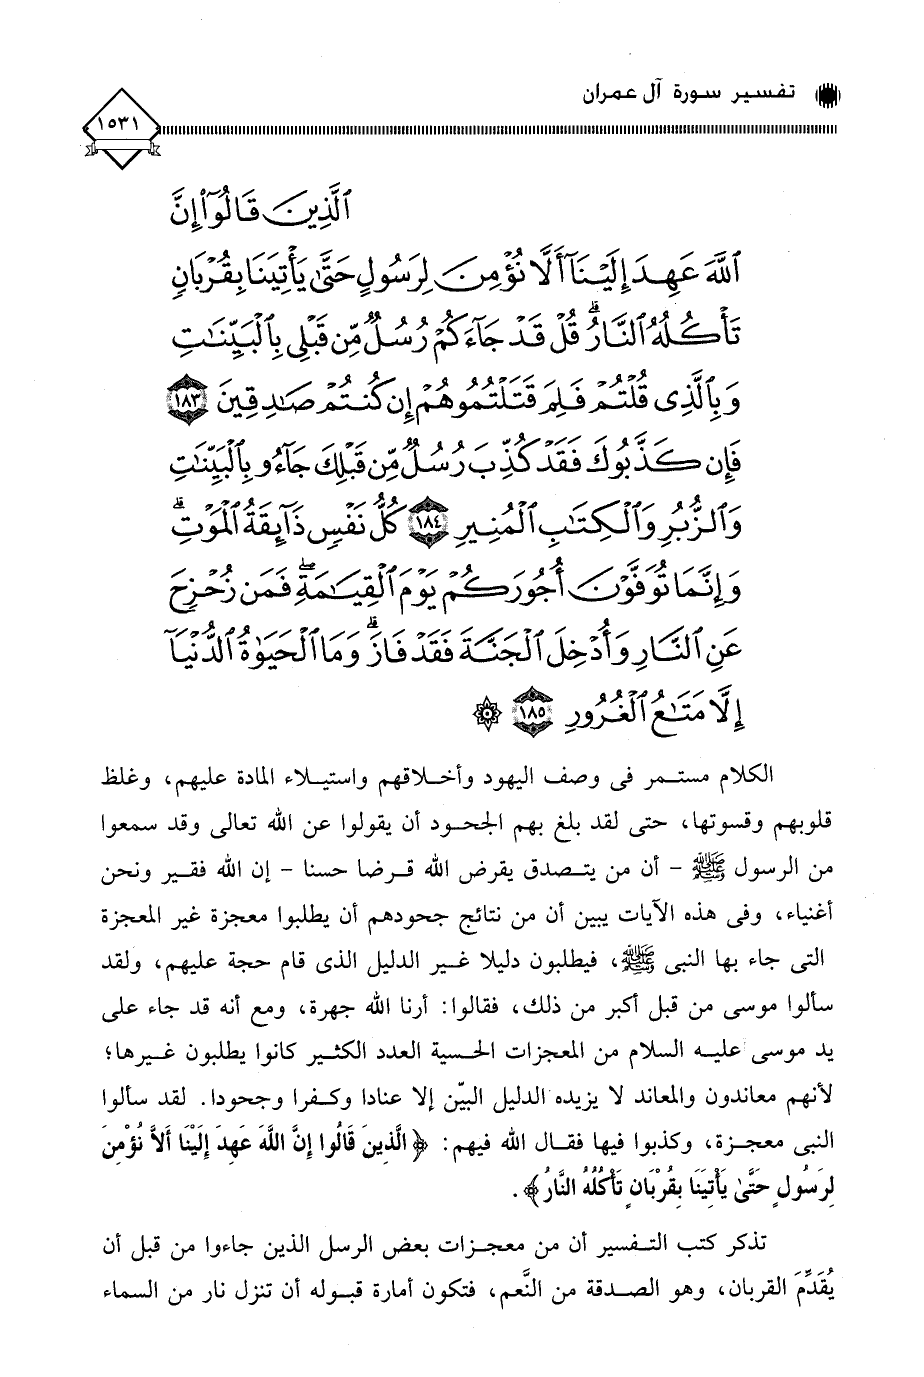 تفسير سورة آل عمران
١٥٣١
ٱلَّذِينَ قَالُوٓاْ إِنَّ
ٱللَّهَ عَهِدَ إِلَيْنَآ أَلَّا نُؤْمِنَ لِرَسُولٍ حَتَّىٰ يَأْتِيَنَا بِقُرْبَانٍ
تَأْكُلُهُ ٱلنَّارُ ۗ قُلْ قَدْ جَآءَكُمْ رُسُلٌ مِّن قَبْلِى بِٱلْبَيِّنَٰتِ
وَبِٱلَّذِى قُلْتُمْ فَلِمَ قَتَلْتُمُوهُمْ إِن كُنتُمْ صَٰدِقِينَ ١٨٣
فَإِن كَذَّبُوكَ فَقَدْ كُذِّبَ رُسُلٌ مِّن قَبْلِكَ جَآءُو بِٱلْبَيِّنَٰتِ
وَٱلزُّبُرِ وَٱلْكِتَٰبِ ٱلْمُنِيرِ ١٨٤ كُلُّ نَفْسٍ ذَآئِقَةُ ٱلْمَوْتِ ۗ
وَإِنَّمَا تُوَفَّوْنَ أُجُورَكُمْ يَوْمَ ٱلْقِيَٰمَةِ ۖ فَمَن زُحْزِحَ
عَنِ ٱلنَّارِ وَأُدْخِلَ ٱلْجَنَّةَ فَقَدْ فَازَ ۗ وَمَا ٱلْحَيَوٰةُ ٱلدُّنْيَآ
إِلَّا مَتَٰعُ ٱلْغُرُورِ ١٨٥
الكلام مستمر فى وصف اليهود وأخلاقهم واستيلاء المادة عليهم، وغلظ
قلوبهم وقسوتها، حتى لقد بلغ بهم الجحود أن يقولوا عن الله تعالى وقد سمعوا
من الرسول ﷺ - أن من يتصدق يقرض الله قرضا حسنا - إن الله فقير ونحن
أغنياء، وفى هذه الآيات يبين أن من نتائج جحودهم أن يطلبوا معجزة غير المعجزة
التى جاء بها النبى ﷺ، فيطلبون دليلا غير الدليل الذى قام حجة عليهم، ولقد
سألوا موسى من قبل أكبر من ذلك، فقالوا: أرنا الله جهرة، ومع أنه قد جاء على
يد موسى عليه السلام من المعجزات الحسية العدد الكثير كانوا يطلبون غيرها؛
لأنهم معاندون والمعاند لا يزيده الدليل البيّن إلا عنادا وكفرا وجحودا. لقد سألوا
النبى معجزة، وكذبوا فيها فقال الله فيهم: ﴿الَّذِينَ قَالُوا إِنَّ اللَّهَ عَهِدَ إِلَيْنَا أَلاَّ نُؤْمِنَ
لِرَسُولٍ حَتَّىٰ يَأْتِيَنَا بِقُرْبَانٍ تَأْكُلُهُ النَّارُ﴾.
تذكر كتب التفسير أن من معجزات بعض الرسل الذين جاءوا من قبل أن
يُقَدِّمَ القربان، وهو الصدقة من النَّعم، فتكون أمارة قبوله أن تنزل نار من السماء